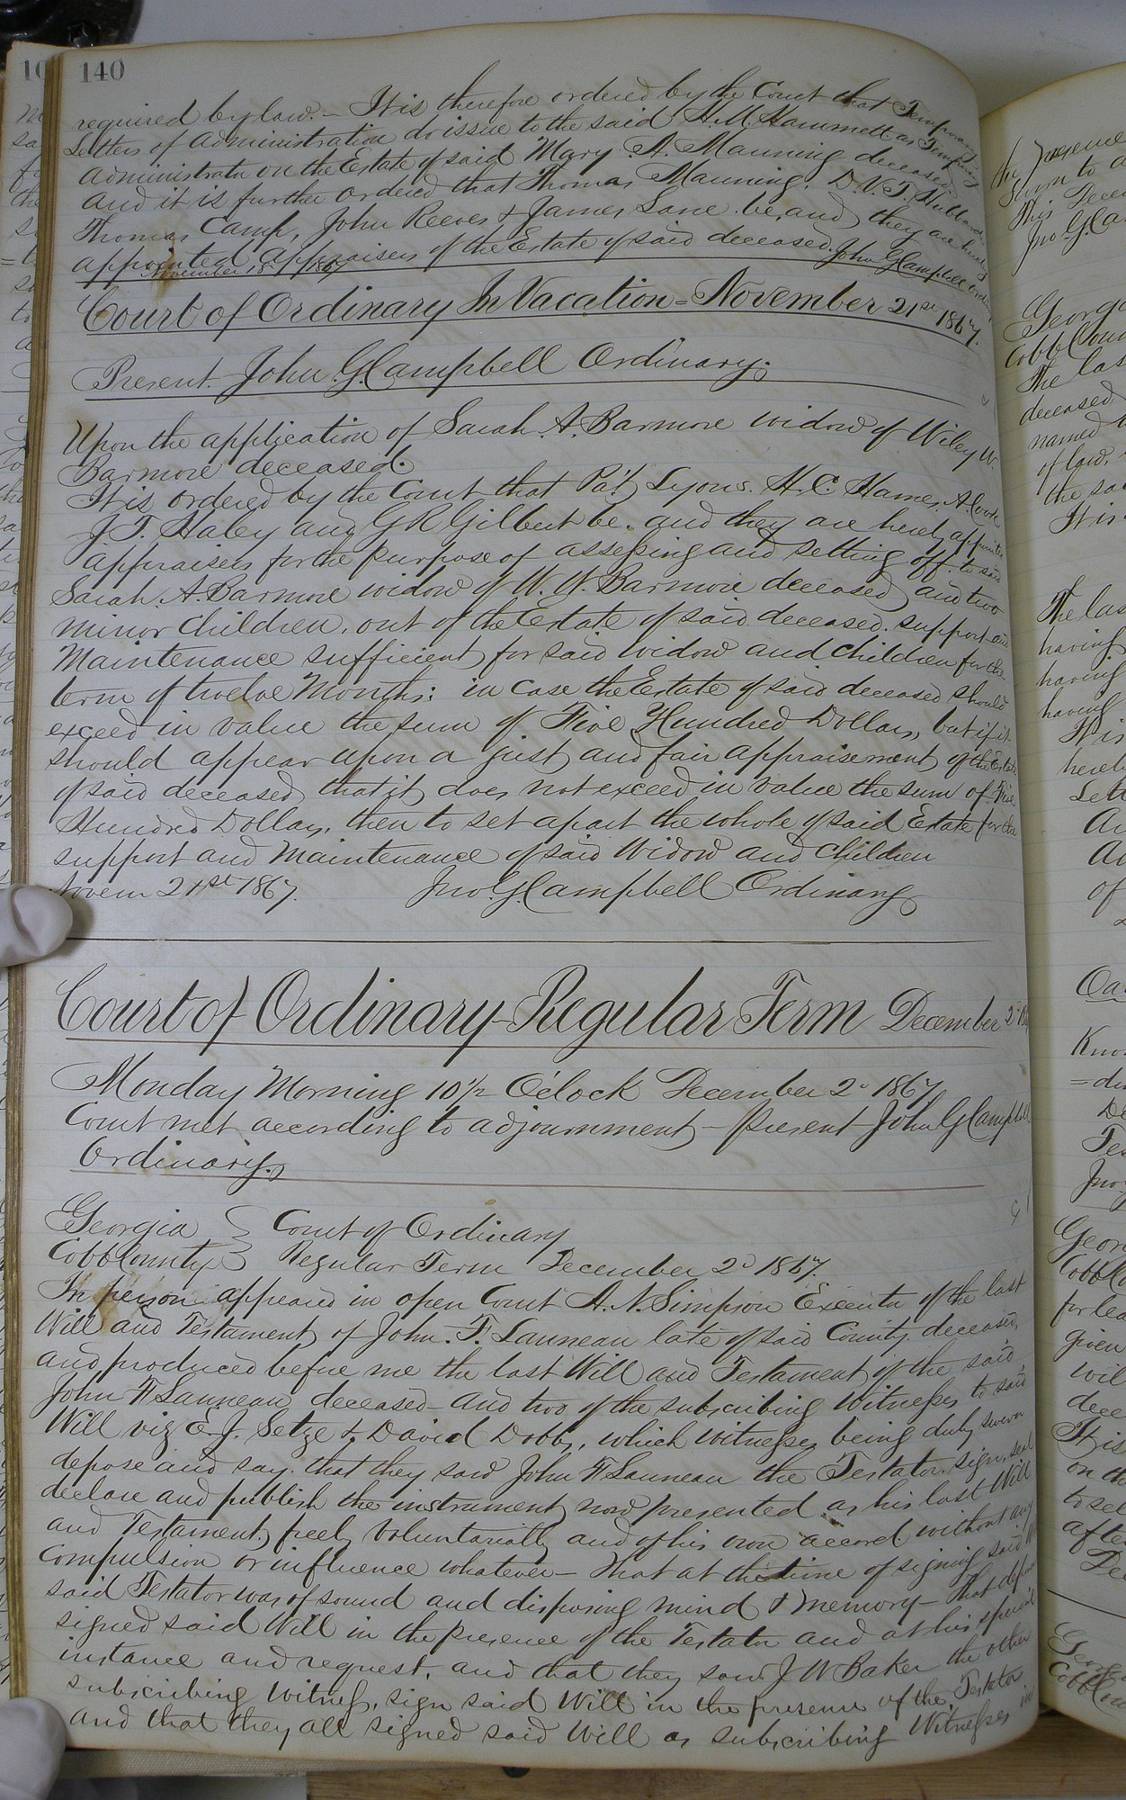 140
required by law. - It is therefore ordered by the Court that Temporary
Letters of administration do issue to the said H. M. Hammett as Temporary
administrator on the Estate of said Mary A. Manning deceased
and it is further ordered that Thomas Manning. D. V. T.
Thomas Camp, John Reeves & James Lane be, and they are hereby
appointed appraisers of the Estate of said deceased. John G. Campbell Ordinary
November 18th 1867
Court of Ordinary In Vacation = November 21st 1867.
Present. John G. Campbell Ordinary.
Upon the application of Sarah A. Barmore widow of Wiley W.
Barmore deceased.
It is ordered by the Court that Pat Lyons. H. C. Hames, A. Cook
J. T. Haley and G R Gilbert be, and they are hereby appointed
appraisers for the purpose of assessing and setting off to said
Sarah A. Barmore widow of W. W. Barmore deceased and two
minor children, out of the Estate of said deceased. support and
Maintenance sufficient for said widow and children for the
term of twelve Months: in case the Estate of said deceased should
exceed in value the sum of Five Hundred Dollars, but if it
should appear upon a just and fair appraisement of the Estate
of said deceased that it does not exceed in value the sum of Five
Hundred Dollars, then to set apart the whole of said Estate for the
support and maintenance of said Widow and children
Novem 21st 1867. Jno. G. Campbell Ordinary
Court of Ordinary - Regular Term December 2d
Monday Morning 10½ O'clock December 2d 1867
Court met according to adjournment - Present John G Campbell
Ordinary.
Georgia } Court of Ordinary
Cobb County } Regular Term December 2d 1867.
In person appeared in open Court A. N. Simpson Executor of the last
Will and Testament of John. F. Lanneau late of said County deceased,
and produced before me the last Will and Testament of the said
John F Lanneau deceased - and two of the subscribing Witnesses to said
Will viz E. J. Setze & David Dobbs, which witnesses being duly sworn
depose and say that they saw John F Lanneau the Testator sign, seal
declare and publish the instrument now presented as his last Will
and Testament, freely voluntarily and of his own accord without any
compulsion or influence whatever - that at the time of signing said
said Testator was of sound and disposing mind & memory - that
signed said Will in the presence of the Testator and at his special
instance and request, and that they saw J W Baker the other
subscribing Witness, sign said Will in the presence of the Testator
and that they all signed said Will as subscribing Witnesses in